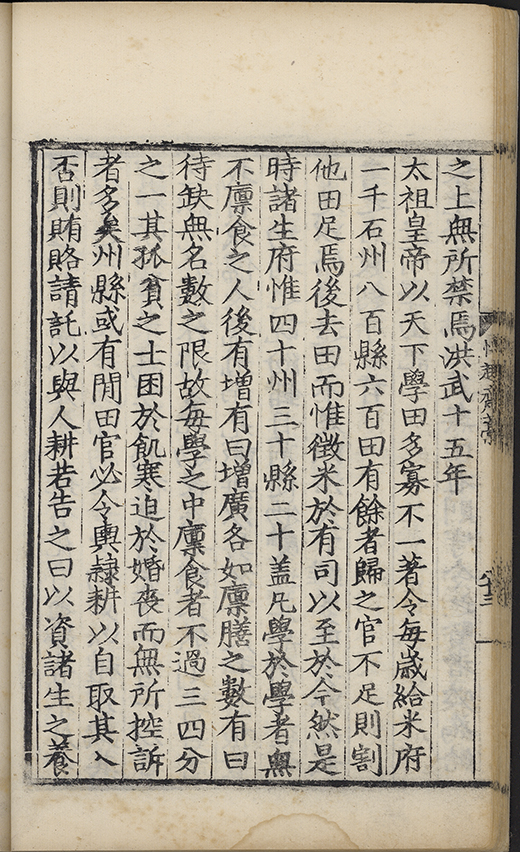 之上無所禁焉洪武十五年
太祖皇帝以天下學田多寡不一著令每歲給米府
一千石州八百縣六百田有餘者歸之官不足則割
他田足焉後去田而惟徵米於有司以至於今然是
時諸生府惟四十州三十縣二十盖凡學於學者無
不廩食之人後有增有曰增廣各如廩膳之數有曰
待缺無名數之限故每學之中廩食者不過三四分
之一其孤貧之士困於飢寒迫於婚喪而無所控訴
者多矣州縣或有閒田官必令輿隸耕以自取其入
否則賄賂請託以與人耕若告之曰以資諸生之養